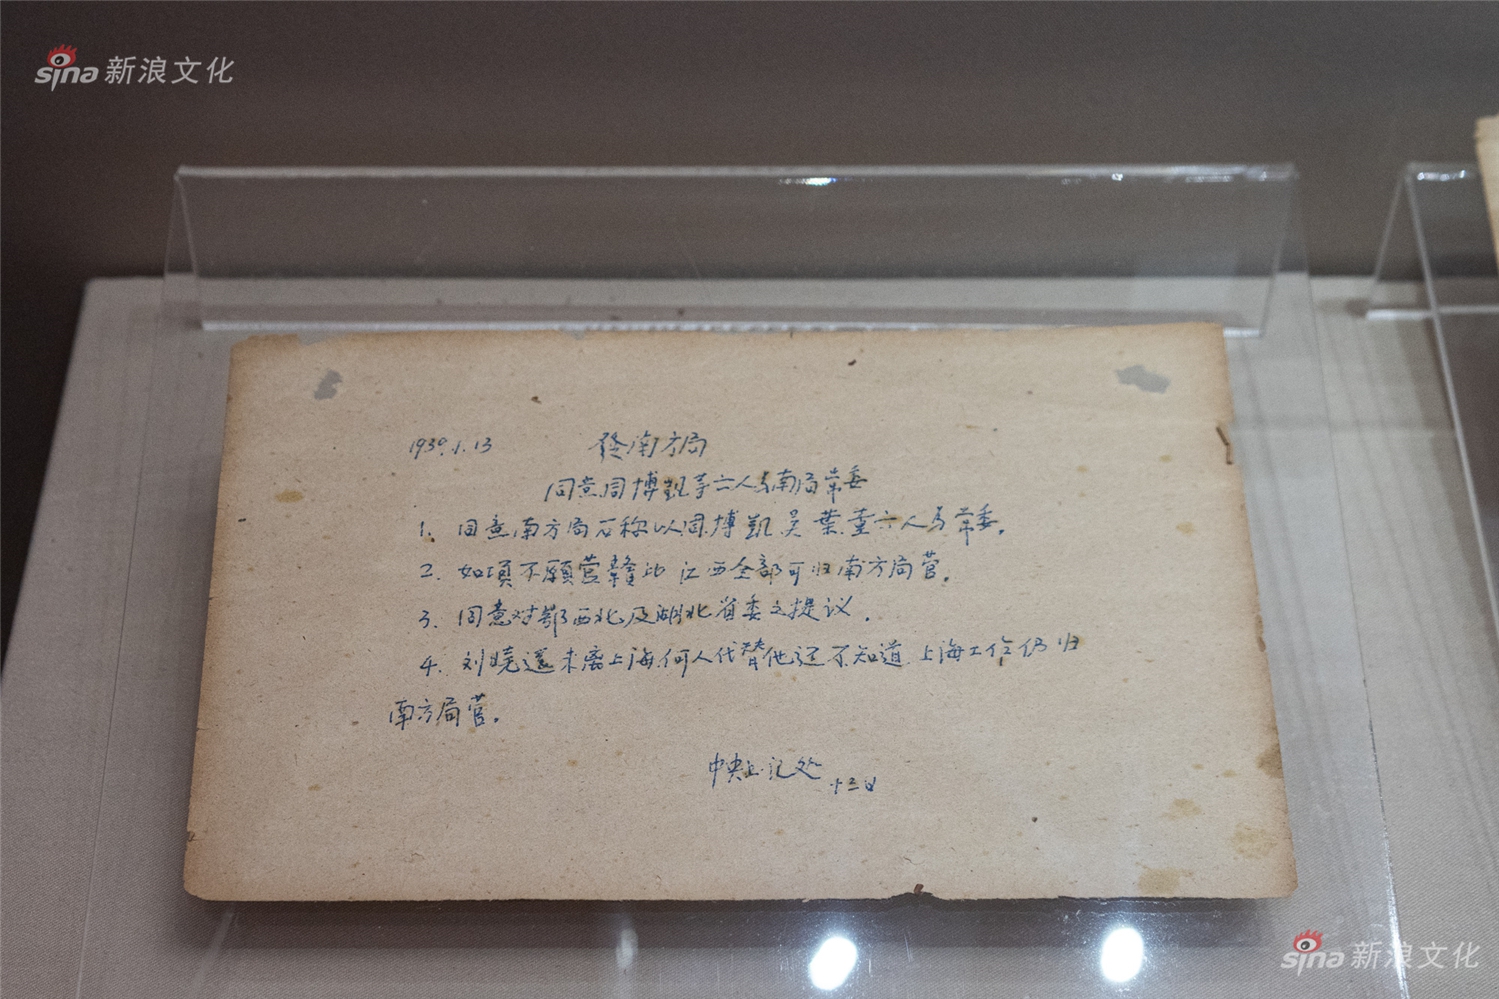 sina 新浪文化
1939.1.13 發南方局
同意周博凯等六人为南局常委
1. 同意南方局名称以周.博.凯.吴.葉.董六人为常委.
2. 如项不願管贛北 江西全部可归南方局管.
3. 同意对鄂西北及湖北省委之提议.
4. 刘晓還未离上海.何人代替他还不知道.上海工作仍归
南方局管.
中央书记处 十三日
sina 新浪文化